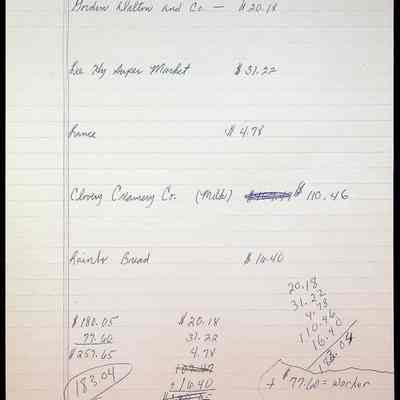 Gordon Dalton and Co. — $20.18
Lee Hy Super Market $31.22
Lance $4.78
Clovery Creamery Co. (Milk) $110.46
Rainbo Bread $16.40
20.18
31.22
4.78
110.46
16.40
183.04
$180.05
77.60
$257.65
183.04
$20.18
31.22
4.78
+16.40
+ $77.60 = worker